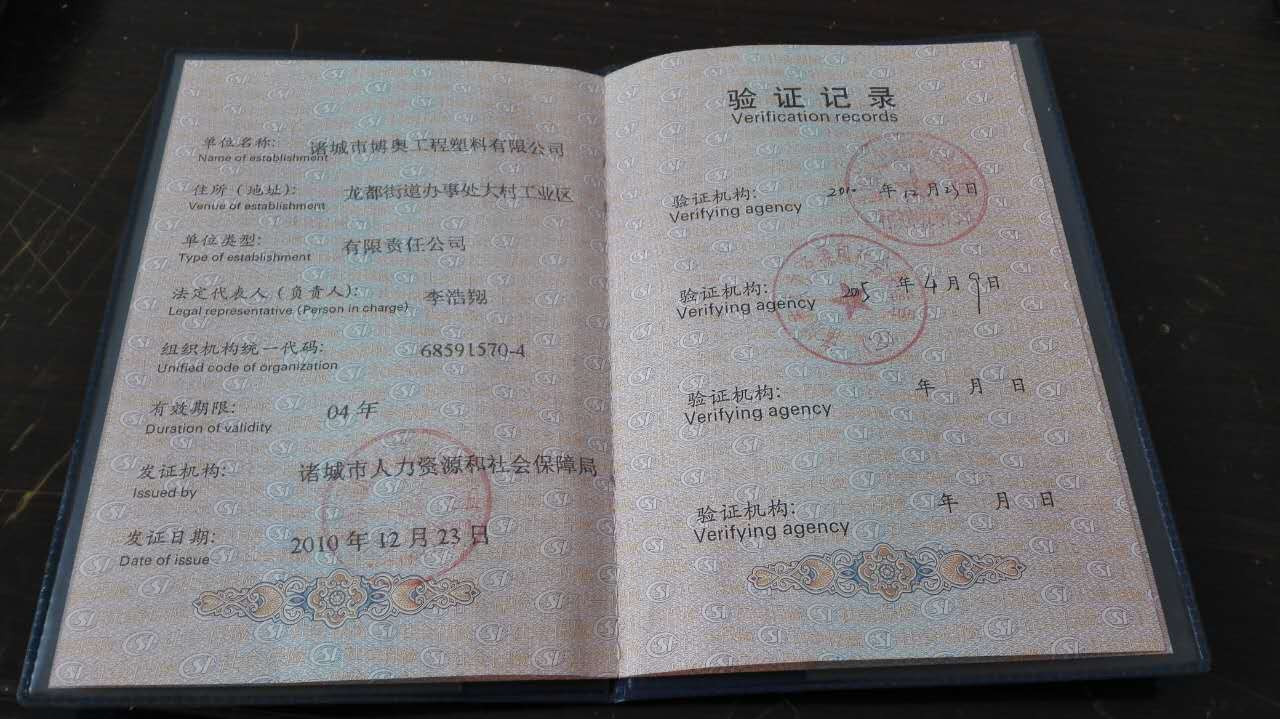 单位名称: 诸城市博奥工程塑料有限公司
Name of establishment
住所（地址）: 龙都街道办事处大村工业区
Venue of establishment
单位类型: 有限责任公司
Type of establishment
法定代表人（负责人）: 李浩翔
Legal representative (Person in charge)
组织机构统一代码: 68591570-4
Unified code of organization
有效期限: 04年
Duration of validity
发证机构: 诸城市人力资源和社会保障局
Issued by
发证日期: 2010年12月23日
Date of issue
验证记录
Verification records
验证机构: 2010年12月23日
Verifying agency
验证机构: 2015年4月9日
Verifying agency
验证机构: 年 月 日
Verifying agency
验证机构: 年 月 日
Verifying agency